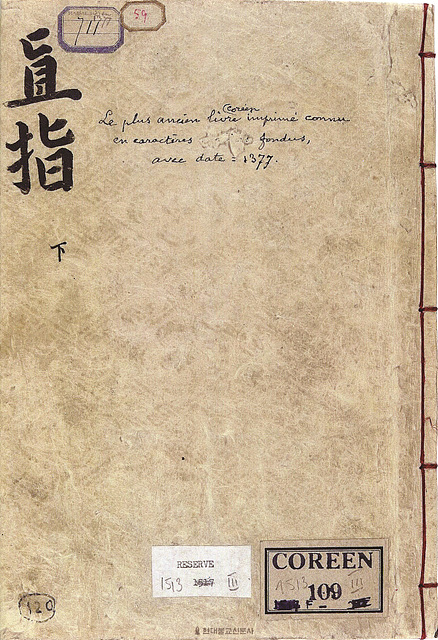 7117
59
直指
下
coréen
Le plus ancien livre imprimé connu
en caractères fondus,
avec date = 1377.
RESERVE
1513 1517 III
COREEN
1513 109 III
F
120
현대불교신문사